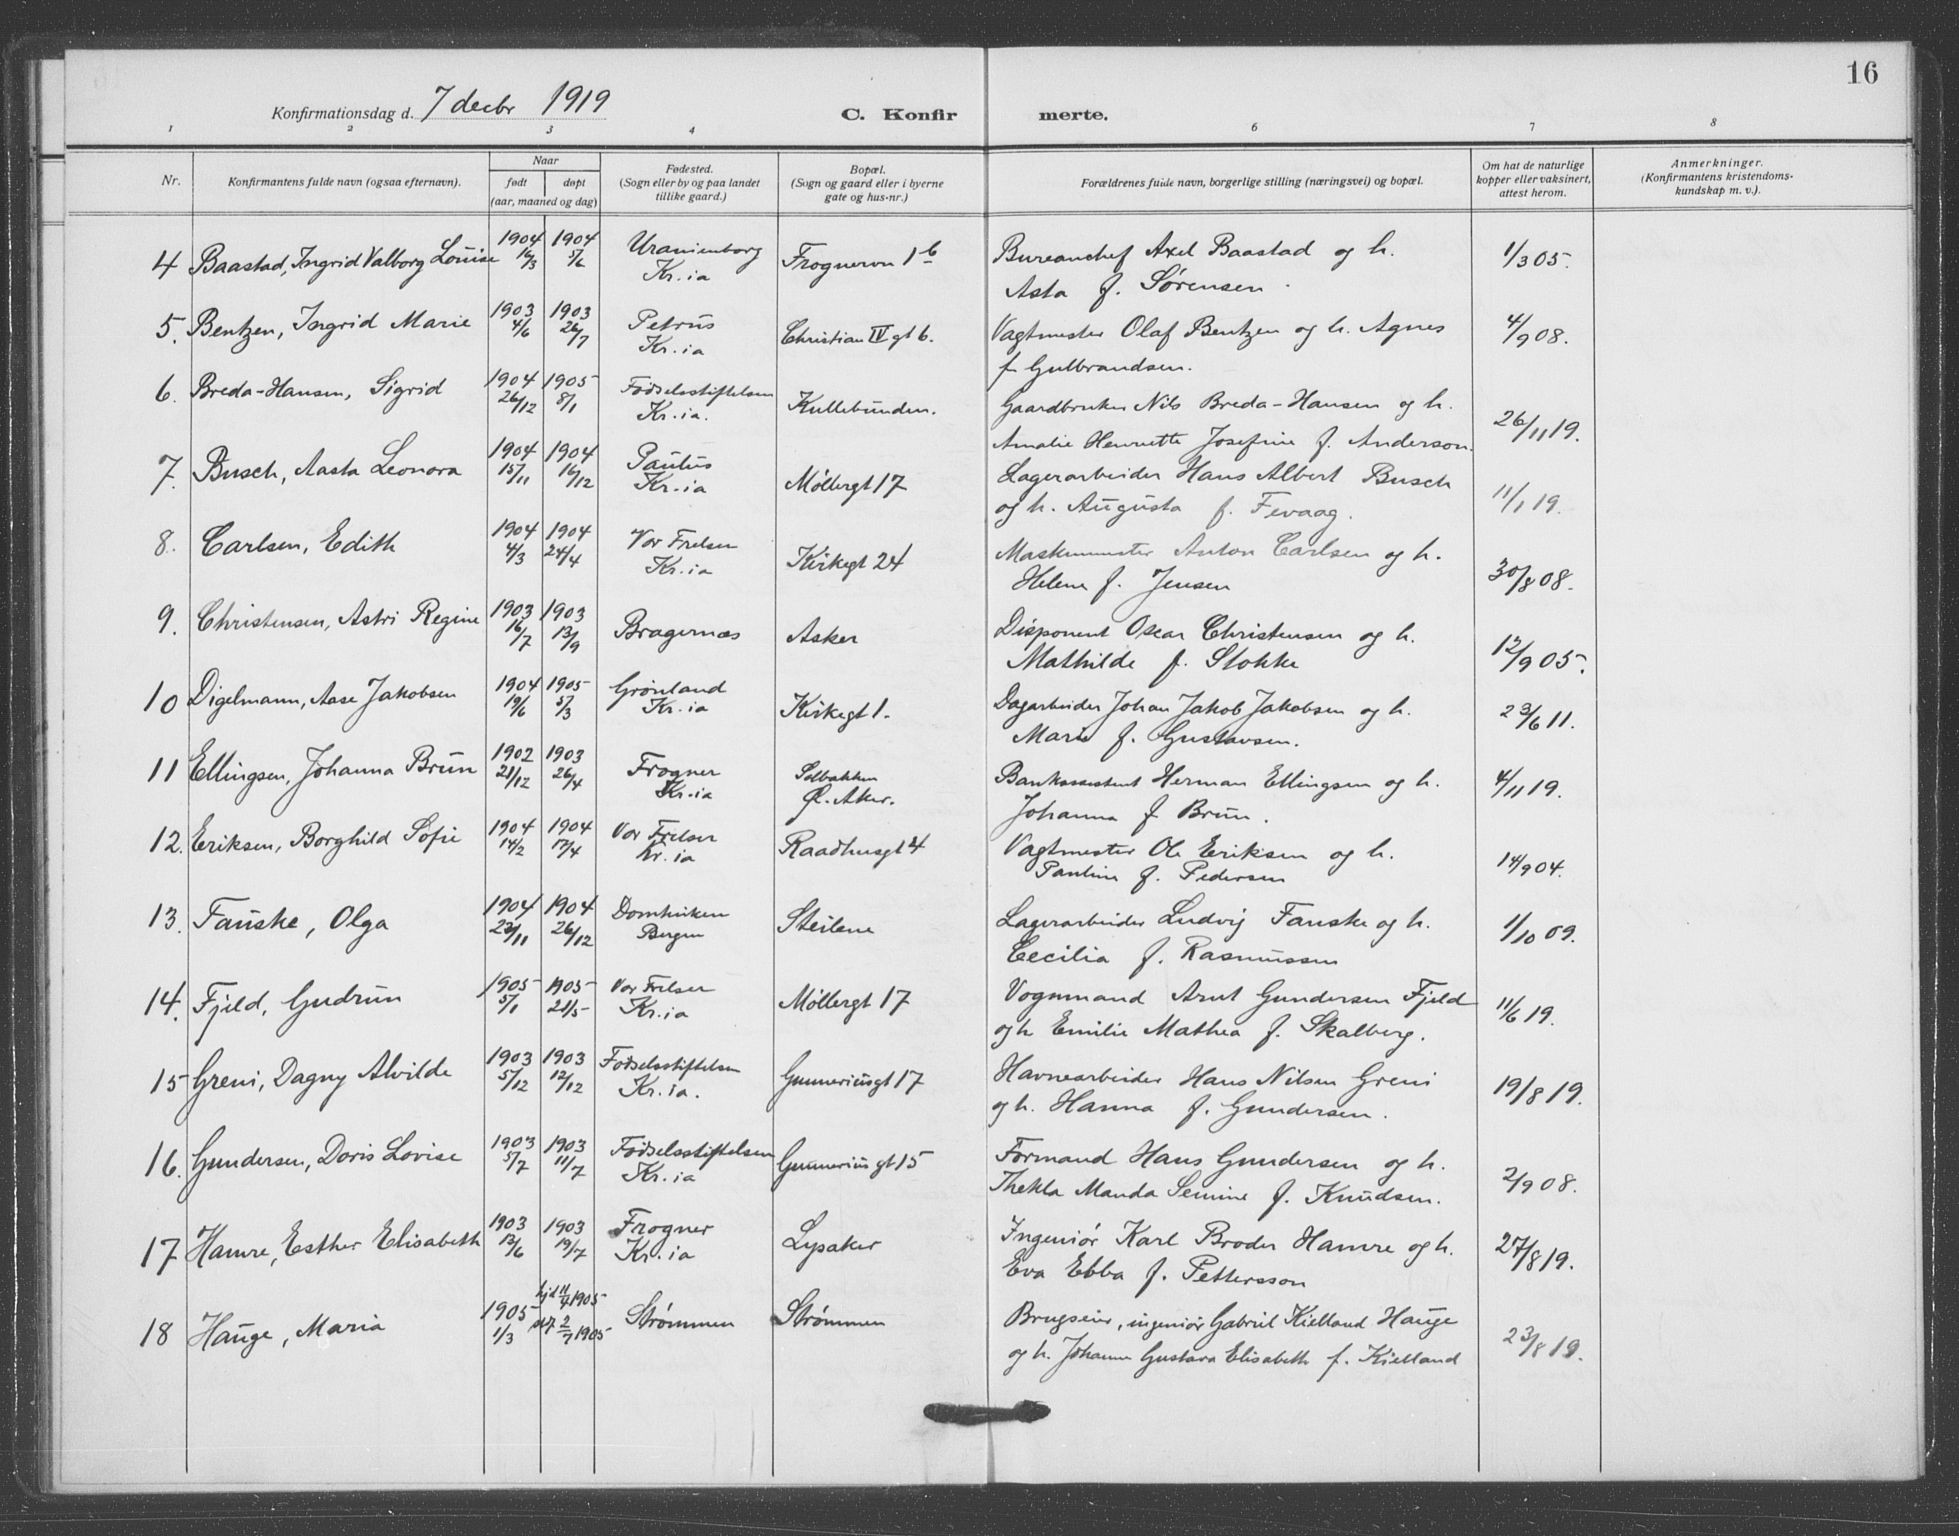 16
Konfirmationsdag d. 7 decbr 1919
C. Konfirmerte.
1 2 3 4 6 7 8
Nr. Konfirmantens fulde navn (ogsaa efternavn). Naar født døpt (aar, maaned og dag) Fødested. (Sogn eller by og paa landet tillike gaard.) Bopæl. (Sogn og gaard eller i byerne gate og hus-nr.) Forældrenes fulde navn, borgerlige stilling (næringsvei) og bopæl. Om hat de naturlige kopper eller vaksinert, attest herom. Anmerkninger. (Konfirmantens kristendomskundskap m. v.).
4 Baastad, Ingrid Valborg Louise 1904 16/3 1904 5/6 Uranienborg Kr.ia Frognervn 1 b Bureauchef Axel Baastad og h. Asta f. Sørensen. 1/3 05.
5. Bentzen, Ingrid Marie 1903 4/6 1903 26/7 Petrus Kr.ia Christian IV gt 6. Vagtmester Olaf Bentzen og h. Agnes f Gulbrandsen. 4/9 08.
6. Breda-Hansen, Sigrid 1904 26/12 1905 8/1 Fødselsstiftelsen Kr.ia. Kullebunden. Gaardbruker Nils Breda-Hansen og h. Amalie Henriette Josefine f. Anderson. 26/11 19.
7. Busch, Aasta Leonora 1904 15/11 1904 16/12 Paulus Kr.ia Møllergt 17 Lagerarbeider Hans Albert Busch og h. Augusta f. Fevaag. 11/1 19.
8. Carlsen, Edith 1904 4/3 1904 24/4 Vor Frelser Kr.ia Kirkegt 24 Maskinmester Anton Carlsen og h. Helene f. Jensen 30/8 08.
9. Christensen, Astri Regine 1903 16/7 1903 13/9 Bragernæs Asker Disponent Oscar Christensen og h. Mathilde f. Stokke 12/9 05.
10 Digelmann, Aase Jakobsen 1904 19/6 1905 5/3 Grønland Kr.ia Kirkegt 1. Dagarbeider Johan Jakob Jakobsen og h. Marie f. Gustavsen. 23/6 11.
11 Ellingsen, Johanna Brun 1902 21/12 1903 26/4 Frogner Kr.ia Solbakken Ø. Aker. Bankassistent Herman Ellingsen og h. Johanna f Brun. 4/11 19.
12. Eriksen, Borghild Sofie 1904 14/2 1904 17/4 Vor Frelser Kr.ia Raadhusgt 4 Vagtmester Ole Eriksen og h. Pauline f. Pedersen 14/9 04.
13. Fauske, Olga 1904 23/11 1904 26/12 Domkirken Bergen Steilene Lagerarbeider Ludvig Fauske og h. Cecilia f. Rasmussen 1/10 09.
14. Fjeld, Gudrun 1905 5/1 1905 21/5 Vor Frelser Kr.ia Møllergt 17 Vognmand Arnt Gundersen Fjeld og h Emilie Mathea f. Skalberg. 11/6 19.
15 Greni, Dagny Alvilde 1903 5/12 1903 12/12 Fødselsstiftelsen Kr.ia. Gunneriusgt 17 Havnearbeider Hans Nilsen Greni og h. Hanna f. Gundersen. 19/8 19.
16. Gundersen, Doris Lovise 1903 5/7 1903 11/7 Fødselsstiftelsen Kr.ia Gunneriusgt 15 Formand Hans Gundersen og h. Thekla Manda Semine f. Knudsen. 2/9 08.
17 Hamre, Esther Elisabeth 1903 13/6 1903 19/7 Frogner Kr.ia Lysaker Ingeniør Karl Broder Hamre og h. Eva Ebba f. Pettersson 27/8 19.
18 Hauge, Maria 1905 1/3 hjd 11/4 1905 stf 2/7 1905 Strømmen Strømmen Brugseier, ingeniør Gabriel Kielland Hauge og h. Johanne Gustava Elisabeth f. Kielland 23/8 19.